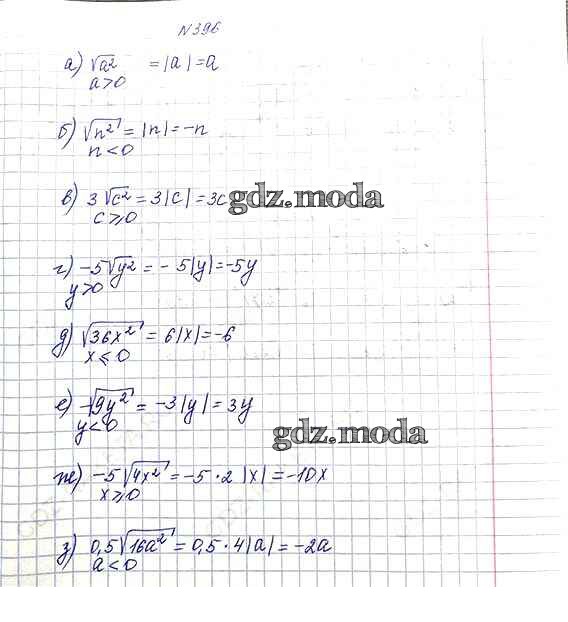 N396
а) √a² = |a| = a
a>0
б) √n² = |n| = -n
n<0
в) 3√c² = 3|c| = 3c gdz.moda
c⩾0
г) -5√y² = -5|y| = -5y
y>0
д) √36x² = 6|x| = -6
x⩽0
е) -√9y² = -3|y| = 3y
y<0
gdz.moda
ж) -5√4x² = -5·2|x| = -10x
x⩾0
з) 0,5√16a² = 0,5·4|a| = -2a
a<0